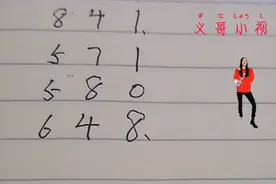 8 4 1、
5 7 1
5 8 0
6 4 8、
义哥小视